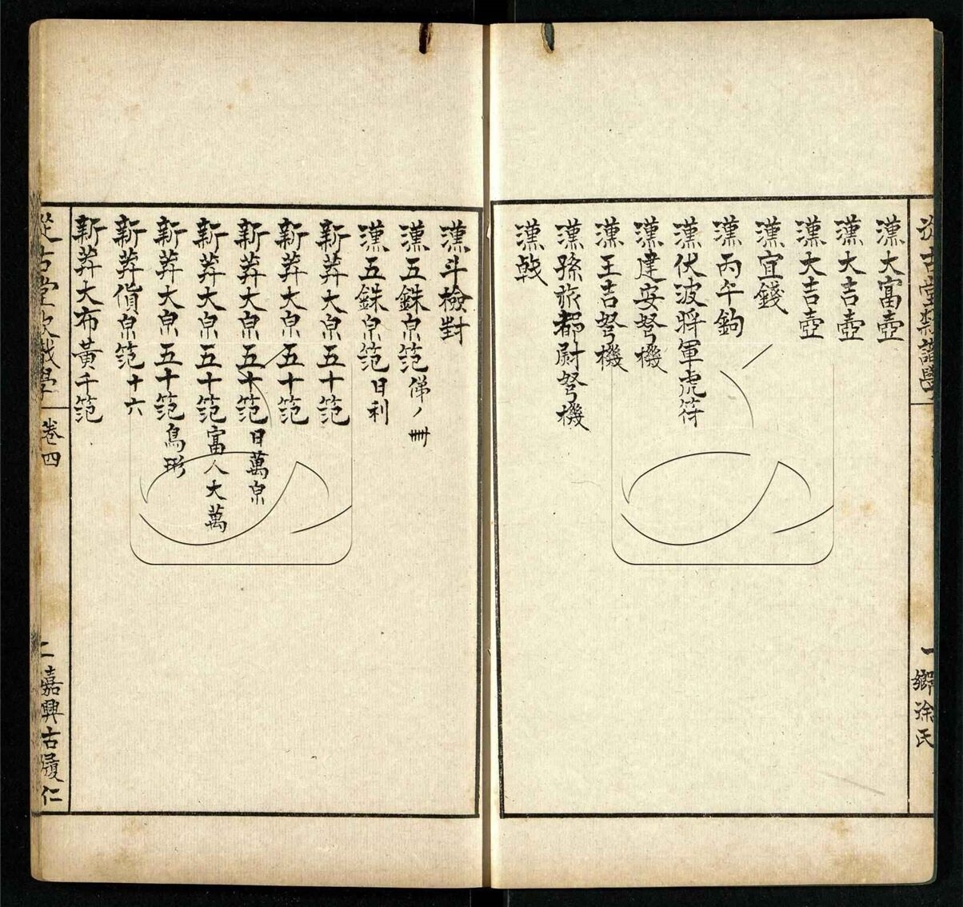 漢大富壺
漢大吉壺
漢大吉壺
漢宜錢
漢丙午鉤
漢伏波將軍虎符
漢建安弩機
漢王吉弩機
漢孫旅都尉弩機
漢戟
一 鄉徐氏
漢斗檢對
漢五銖泉笵
漢五銖泉笵 日利
新莽大泉五十笵
新莽大泉五十笵
新莽大泉五十笵 日萬泉
新莽大泉五十笵 富人大萬
新莽大泉五十笵 鳥形
新莽貨泉笵 十六
新莽大布黃千笵
從古堂款識學 卷四
二 嘉興古履仁